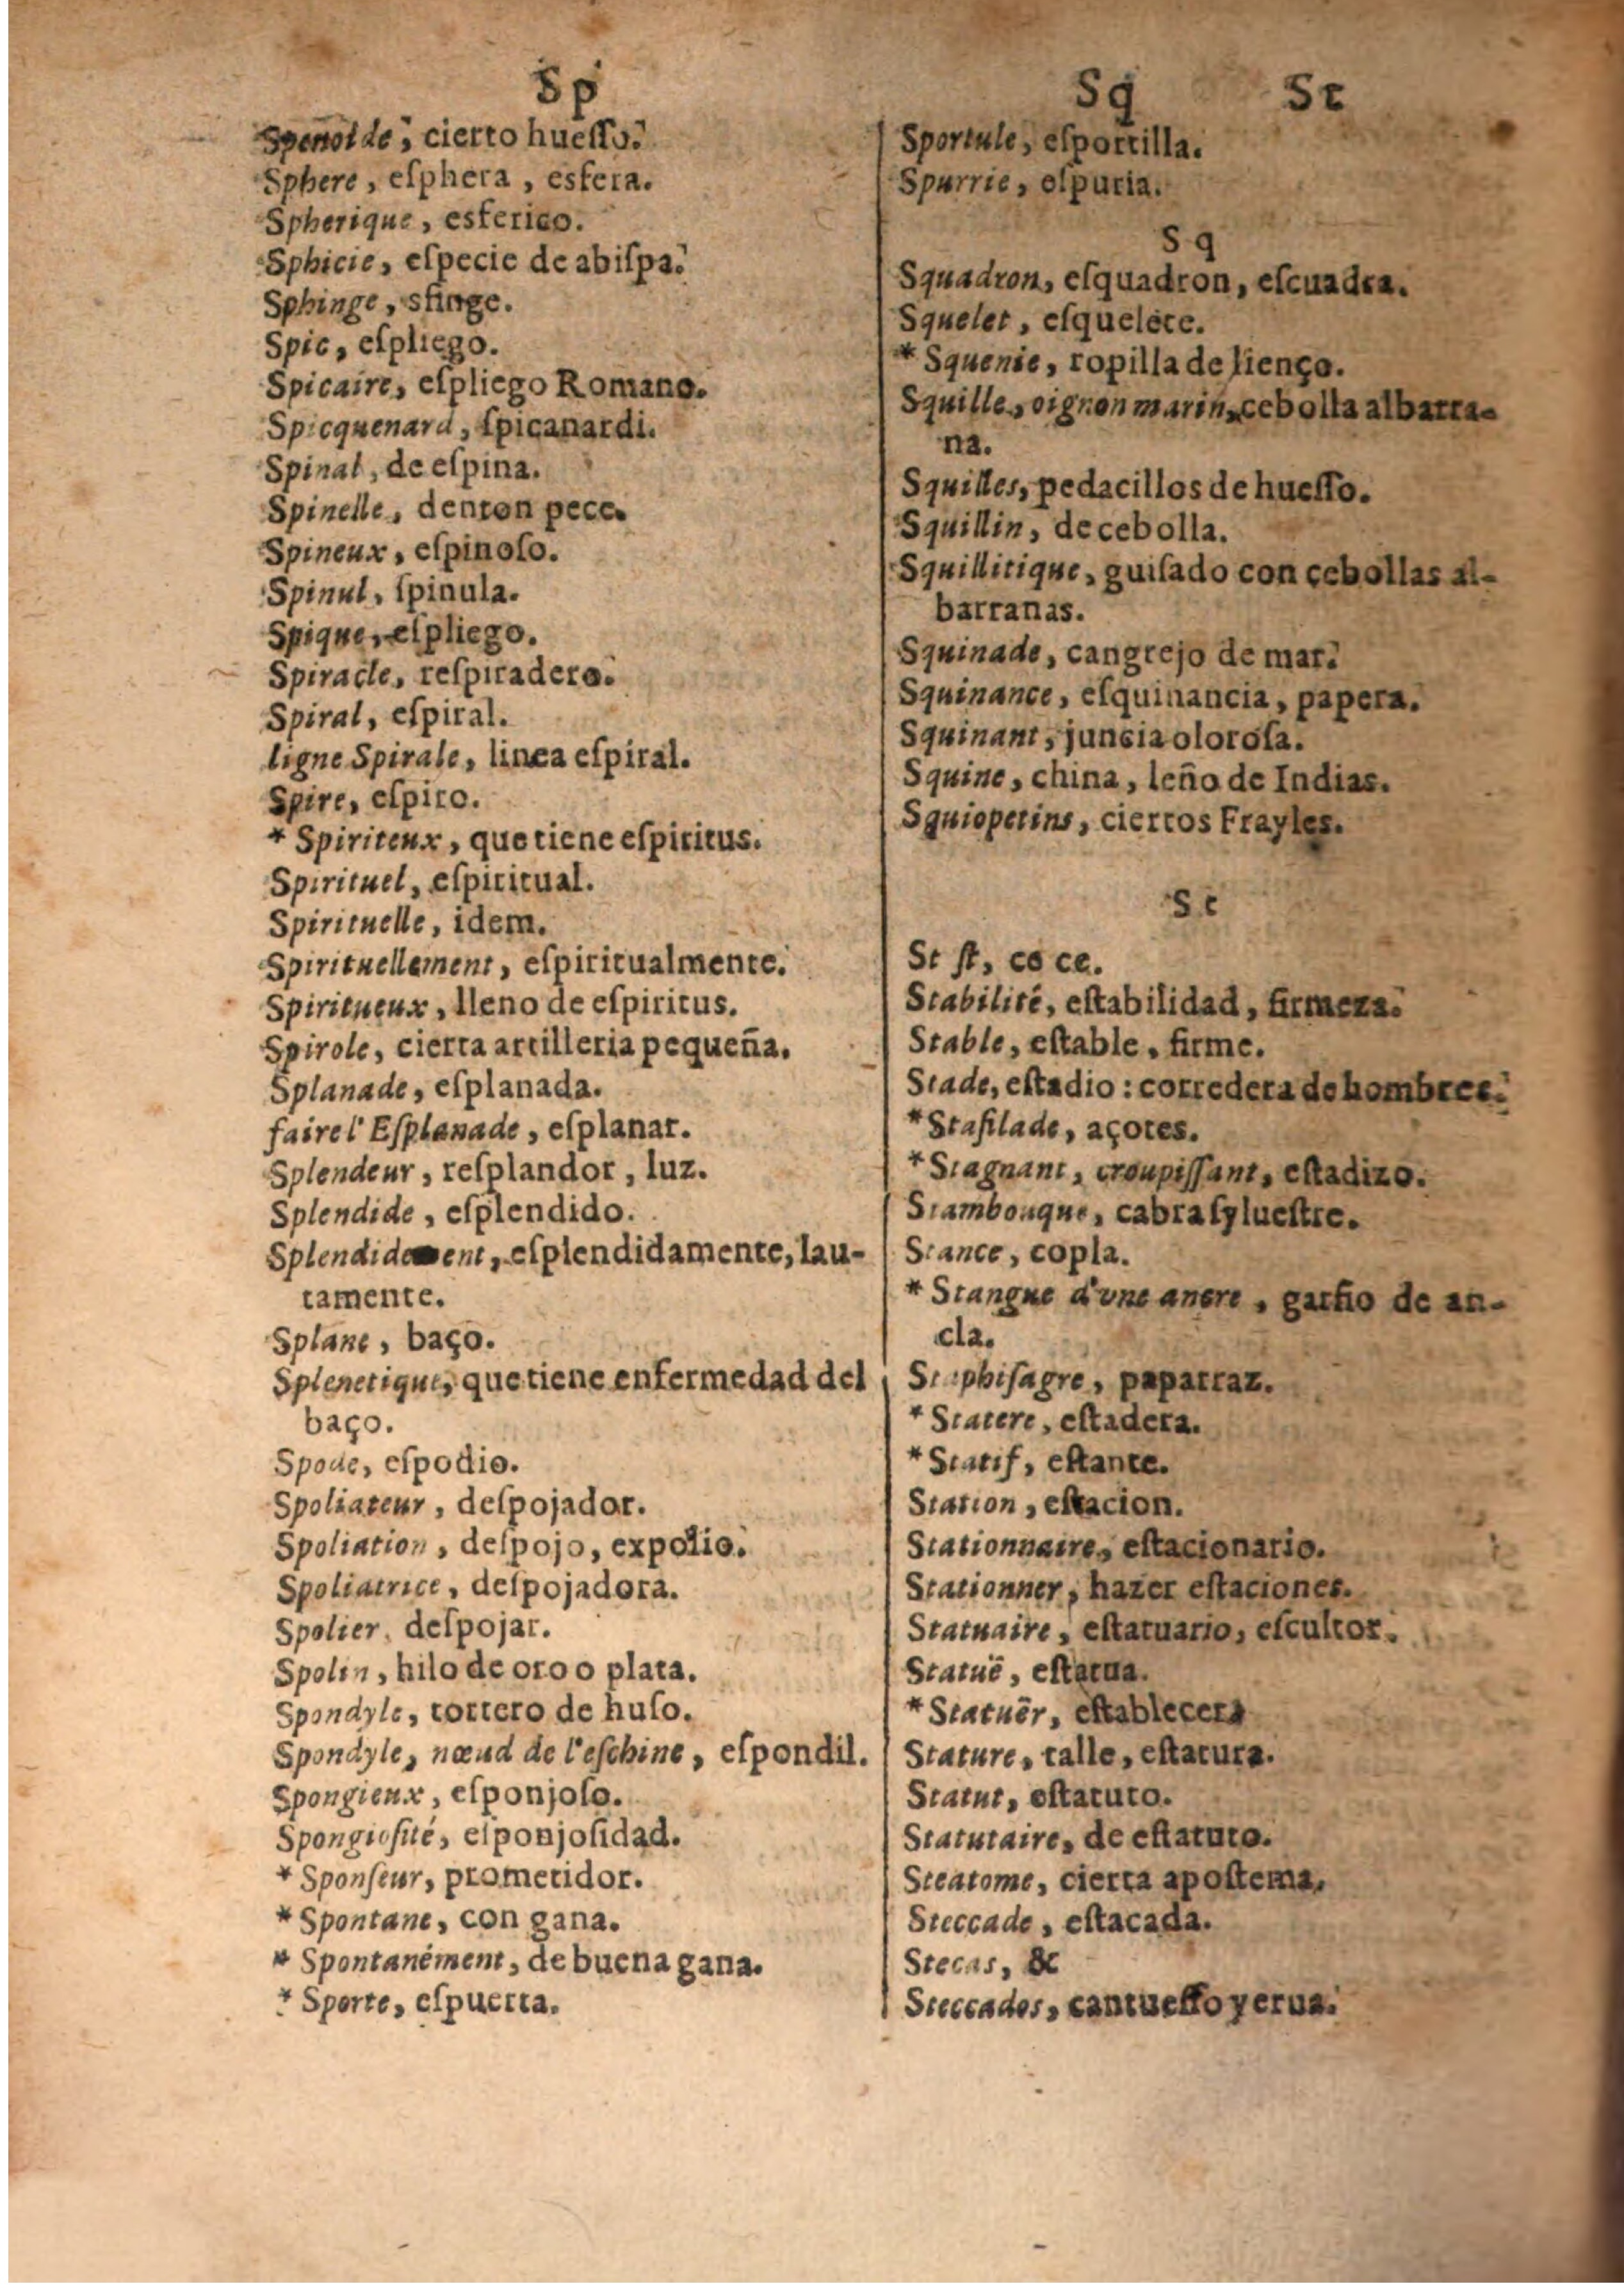 Sp
Spenoide, cierto hueſſo.
Sphere, eſphera, esfera.
Spherique, esferico.
Sphicie, eſpecie de abiſpa.
Sphinge, sfinge.
Spic, eſpliego.
Spicaire, eſpliego Romano.
Spicquenard, ſpicanardi.
Spinal, de eſpina.
Spinelle, denton pece.
Spineux, eſpinoſo.
Spinul, ſpinula.
Spique, eſpliego.
Spiracle, reſpiradero.
Spiral, eſpiral.
ligne Spirale, linea eſpiral.
Spire, eſpiro.
* Spiriteux, que tiene eſpiritus.
Spirituel, eſpiritual.
Spirituelle, idem.
Spirituellement, eſpiritualmente.
Spiritueux, lleno de eſpiritus.
Spirole, cierta artilleria pequeña.
Splanade, eſplanada.
faire l'Eſplanade, eſplanar.
Splendeur, reſplandor, luz.
Splendide, eſplendido.
Splendidement, eſplendidamente, lau-
tamente.
Splane, baço.
Splenetique, que tiene enfermedad del
baço.
Spode, eſpodio.
Spoliateur, deſpojador.
Spoliation, deſpojo, expolio.
Spoliatrice, deſpojadora.
Spolier, deſpojar.
Spolin, hilo de oro o plata.
Spondyle, tortero de huſo.
Spondyle, nœud de l'eſchine, eſpondil.
Spongieux, eſponjoſo.
Spongioſité, eſponjoſidad.
* Sponſeur, prometidor.
* Spontane, con gana.
* Spontanément, de buena gana.
* Sporte, eſpuerta.
Sq St
Sportule, eſportilla.
Spurrie, eſpuria.
Sq
Squadron, eſquadron, eſcuadra.
Squelet, eſquelete.
* Squenie, ropilla de lienço.
Squille, oignon marin, cebolla albarra-
na.
Squilles, pedacillos de hueſſo.
Squillin, de cebolla.
Squillitique, guiſado con cebollas al-
barranas.
Squinade, cangrejo de mar.
Squinance, eſquinancia, papera.
Squinant, juncia oloroſa.
Squine, china, leño de Indias.
Squiopetins, ciertos Frayles.
St
St ſt, ce ce.
Stabilité, eſtabilidad, firmeza.
Stable, eſtable, firme.
Stade, eſtadio: corredera de hombres.
* Stafilade, açotes.
* Stagnant, croupiſſant, eſtadizo.
Stambouque, cabra ſylueſtre.
Stance, copla.
* Stangue d'vne ancre, garfio de an-
cla.
Staphiſagre, paparraz.
* Statere, eſtadera.
* Statif, eſtante.
Station, eſtacion.
Stationnaire, eſtacionario.
Stationner, hazer eſtaciones.
Statuaire, eſtatuario, eſcultor.
Statuë, eſtatua.
* Statuër, eſtablecer.
Stature, talle, eſtatura.
Statut, eſtatuto.
Statutaire, de eſtatuto.
Steatome, cierta apoſtema.
Steccade, eſtacada.
Stecas, &c
Steccados, cantueſſo yerua.